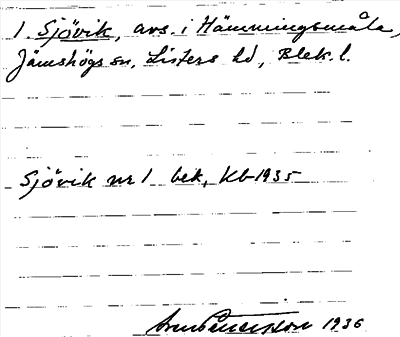 1. Sjövik, avs. i Hämmingsmåla,
Jämshögs sn, Listers hd, Blek. l.
Sjövik nr 1 bek, Kb 1935
1936